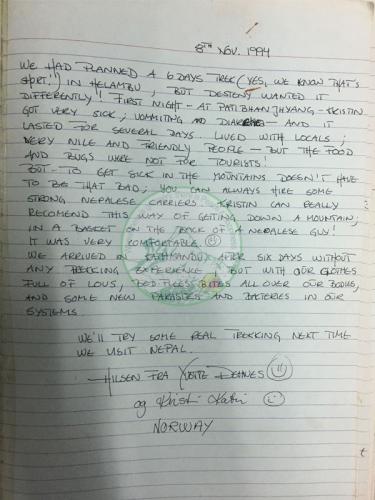 8TH NOV. 1994
WE HAD PLANNED A 6 DAYS TREK (YES, WE KNOW THAT'S
SHORT!) IN HELAMBU, BUT DESTENY WANTED IT
DIFFERENTLY! FIRST NIGHT - AT PATIBHANJHYANG - KRISTIN
GOT VERY SICK; VOMMITING AND - AND IT
LASTED FOR SEVERAL DAYS. LIVED WITH LOCALS;
VERY NILE AND FRIENDLY PEOPLE - BUT THE FOOD
AND BUGS WERE NOT FOR TOURISTS!
BUT - TO GET SICK IN THE MOUNTAINS DOESN'T HAVE
TO BE THAT BAD; YOU CAN ALWAYS HIRE SOME
STRONG NEPALESE CARRIERS. KRISTIN CAN REALLY
RECOMEND THIS WAY OF GETTING DOWN A MOUNTAIN;
IN A BASKET ON THE BACK OF A NEPALESE GUY!
IT WAS VERY COMFORTABLE.
WE ARRIVED IN KATHMANDU AFTER SIX DAYS WITHOUT
ANY TREKKING EXPERIENCE, BUT WITH OUR CLOTHES
FULL OF LOUS, BED FLEES BITES ALL OVER OUR BODIES,
AND SOME NEW PARASITES AND BACTERIES IN OUR
SYSTEMS.
WE'LL TRY SOME REAL TREKKING NEXT TIME
WE VISIT NEPAL.
HILSEN FRA
og Kristin
NORWAY